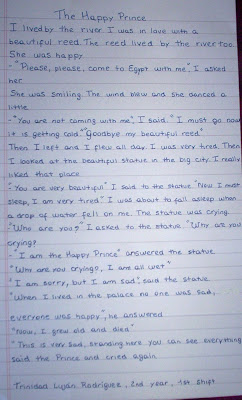 The Happy Prince
I lived by the river. I was in love with a
beautiful reed. The reed lived by the river too.
She was happy.
-"Please, please, come to Egypt with me", I asked
her.
She was smiling. The wind blew and she danced a
little.
-"You are not coming with me", I said. "I must go now
it is getting cold." "Goodbye my beautiful reed"
Then I left and I flew all day. I was very tired. Then
I looked at the beautiful statue in the big city. I really
liked that place
-"You are very beautiful" I said to the statue. "Now I must
sleep, I am very tired". I was about to fall asleep when
a drop of water fell on me. The statue was crying.
-"Who are you?" I asked to the statue. "Why are you
crying?
-"I am the Happy Prince" answered the statue
"Why are you crying?, I am all wet"
"I am sorry, but I am sad", said the statue.
"When I lived in the palace no one was sad,
everyone was happy", he answered
"Now, I grew old and died"
"This is very sad, standing here you can see everything
said the Prince and cried again
Trinidad Luján Rodriguez, 2nd year, 1st shift